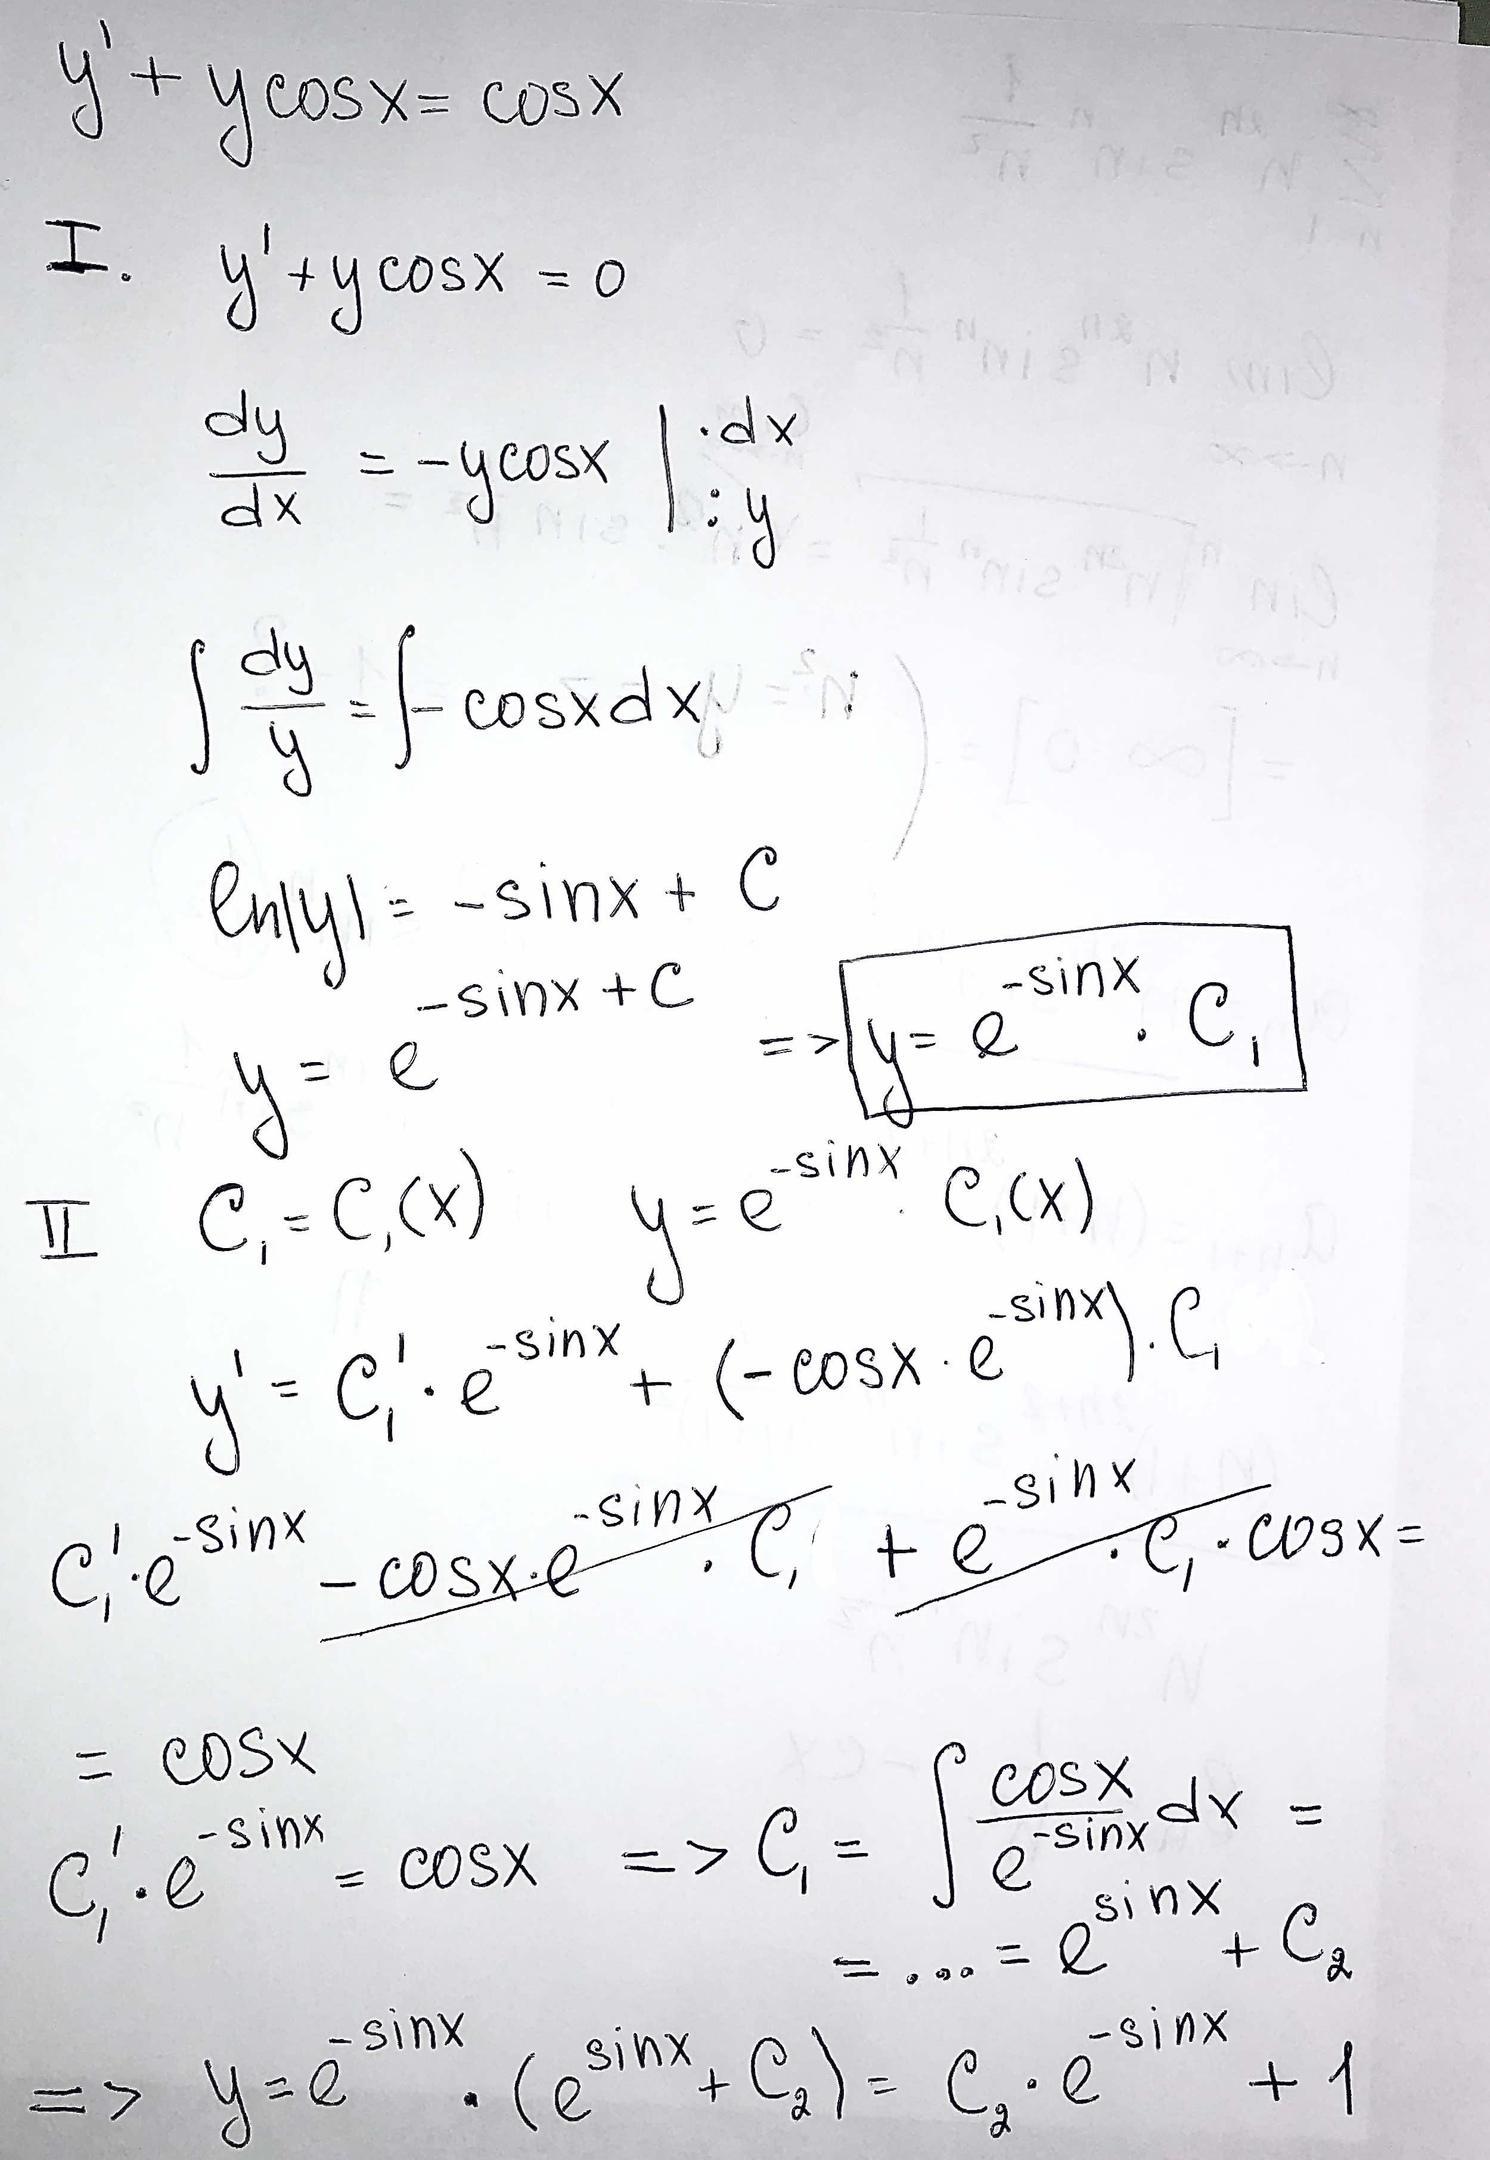 y' + y cosx = cosx
I. y' + y cosx = 0
dy/dx = -y cosx | ·dx :y
∫ dy/y = ∫ - cosx dx
ln|y| = -sinx + C
y = e^(-sinx + C) => y = e^(-sinx) · C₁
II C₁ = C₁(x) y = e^(-sinx) · C₁(x)
y' = C₁' · e^(-sinx) + (-cosx · e^(-sinx)) · C₁
C₁' · e^(-sinx) - cosx · e^(-sinx) · C₁ + e^(-sinx) · C₁ · cosx =
= cosx
C₁' · e^(-sinx) = cosx => C₁ = ∫ cosx/e^(-sinx) dx =
= ... = e^(sinx) + C₂
=> y = e^(-sinx) · (e^(sinx) + C₂) = C₂ · e^(-sinx) + 1